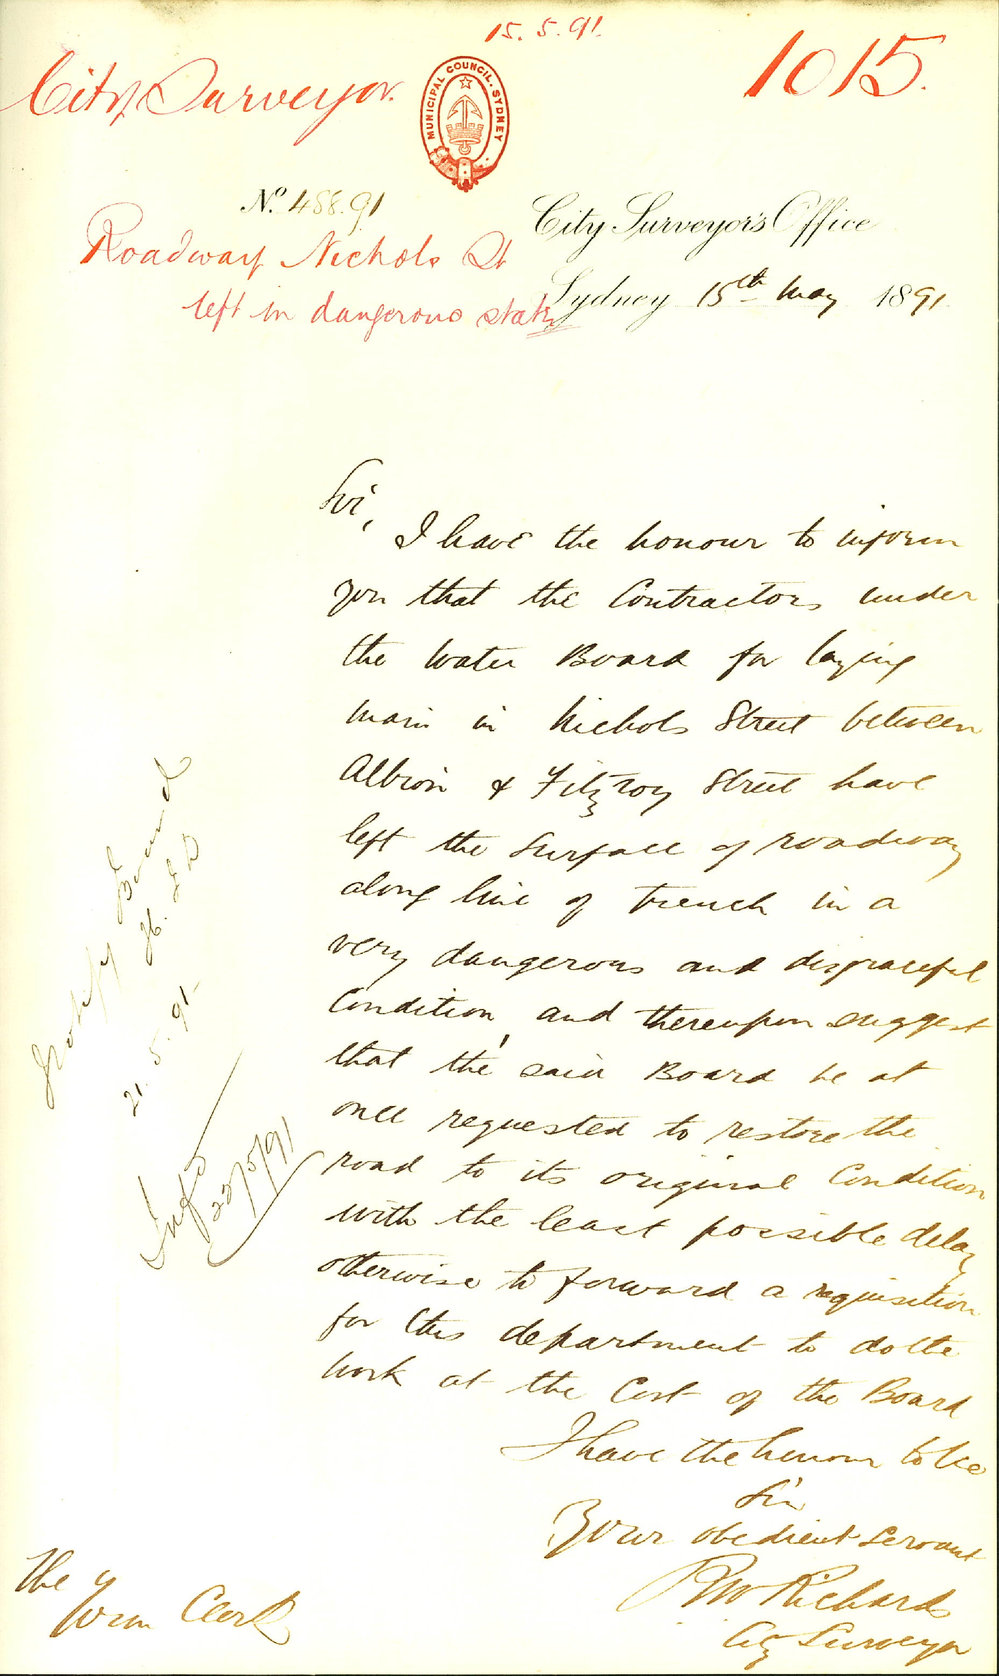 15.5.91.
City Surveyor.
1015.
MUNICIPAL COUNCIL. SYDNEY
No. 458.91
City Surveyor's Office
Roadway Nichols St
left in dangerous state
Sydney 15th May 1891.
Sir,
I have the honour to inform
you that the Contractors under
the Water Board for laying
main in Nichols Street between
Albion & Fitzroy Street have
left the surface of roadway
along line of trench in a
very dangerous and disgraceful
Condition, and thereupon suggest
that the said Board be at
once requested to restore the
road to its original Condition
with the least possible delay
otherwise to forward a requisition
for this department to do the
work at the Cost of the Board
I have the honour to be
Sir
Your obedient Servant
Richards
City Surveyor
The
Town Clerk
Notify Board
21.5.91.
Infd
22/5/91